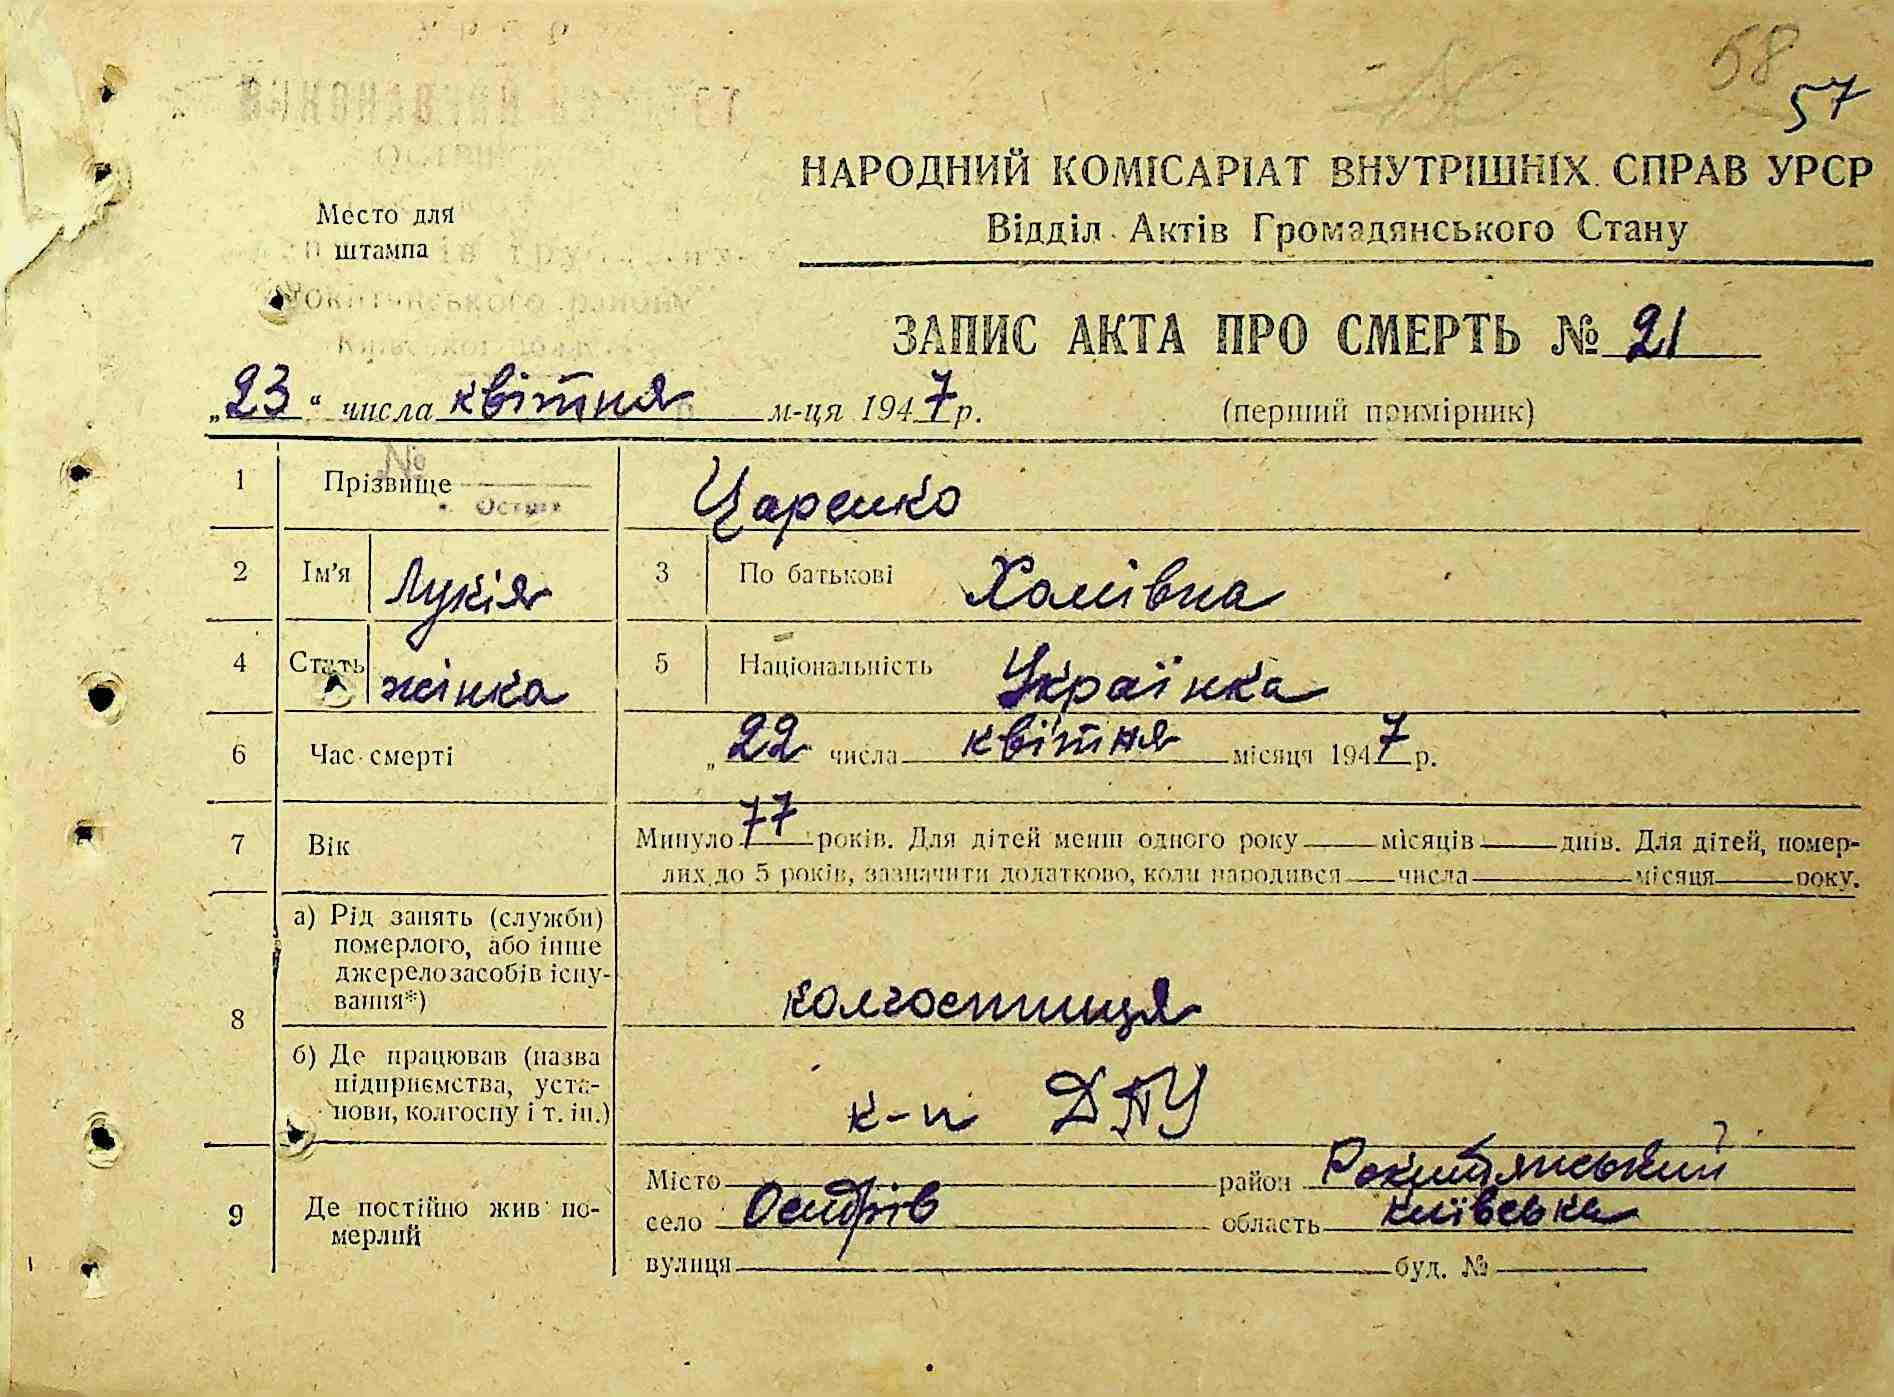 58
57
НАРОДНИЙ КОМІСАРІАТ ВНУТРІШНІХ СПРАВ УРСР
Место для
штампа
Відділ Актів Громадянського Стану
ЗАПИС АКТА ПРО СМЕРТЬ № 21
„23“ числа квітня м-ця 1947 р. (перший примірник)
1 Прізвище Царенко
2 Ім'я Лукія 3 По батькові Хомівна
4 Стать жінка 5 Національність Українка
6 Час смерті „22 числа квітня місяця 1947 р.
7 Вік Минуло 77 років. Для дітей менш одного року місяців днів. Для дітей, помер-
лих до 5 років, зазначити додатково, коли народився числа місяця року.
8 а) Рід занять (служби)
померлого, або інше
джерело засобів існу-
вання*) колгоспниця
б) Де працював (назва
підприємства, уста-
нови, колгоспу і т. ін.) к-п ДПУ
9 Де постійно жив по-
мерлий
Місто район Рокитянський
село Острів область київська
вулиця буд. №